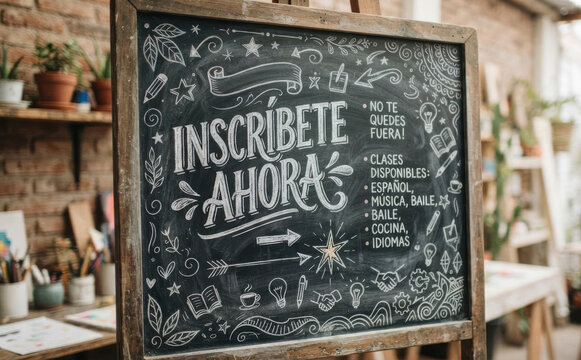 INSCRÍBETE
AHORA
• NO TE
QUEDES
FUERA!
• CLASES
DISPONIBLES:
• ESPAÑOL,
• MÚSICA, BAILE,
• BAILE,
• COCINA,
• IDIOMAS